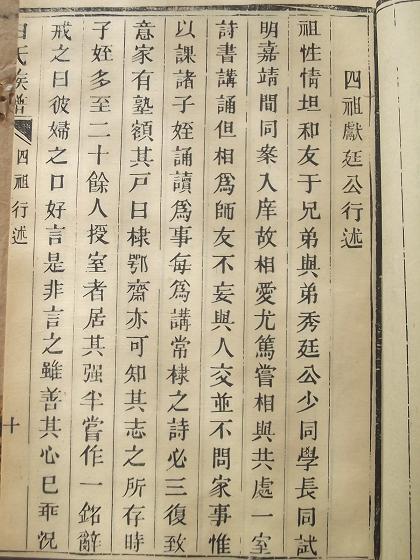 四祖獻廷公行述
祖性情坦和友于兄弟與弟秀廷公少同學長同試
明嘉靖間同案入庠故相愛尤篤嘗相與共處一室
詩書講誦但相為師友不妄與人交並不問家事惟
以課諸子姪誦讀為事每為講常棣之詩必三復致
意家有塾額其戸曰棣鄂齋亦可知其志之所存時
子姪多至二十餘人授室者居其强半嘗作一銘辭
戒之曰彼婦之口好言是非言之雖善其心已乖況
氏族譜
四祖行述
十